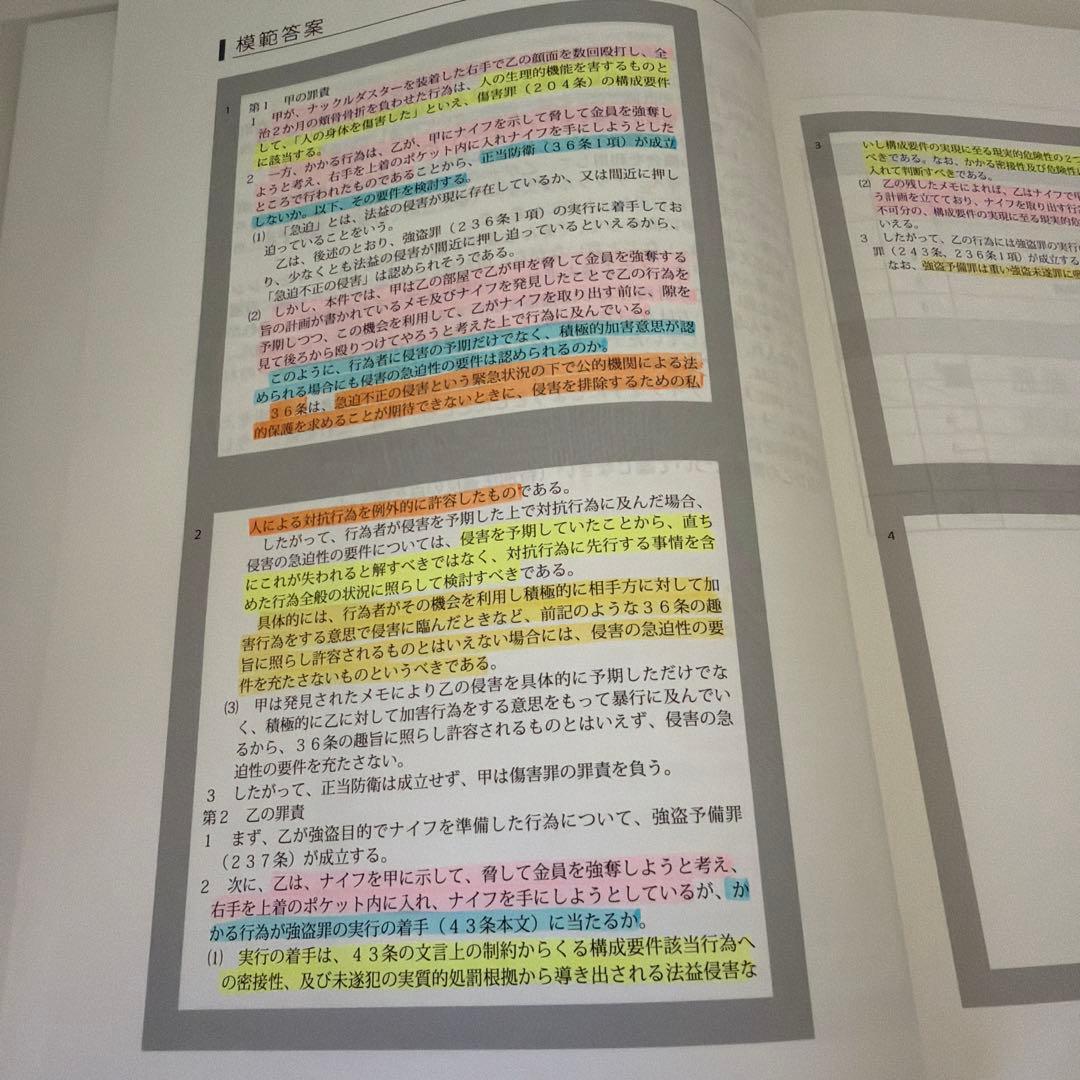 模範答案
1
第1 甲の罪責
1 甲が、ナックルダスターを装着した右手で乙の顔面を数回殴打し、全
治2か月の頬骨骨折を負わせた行為は、人の生理的機能を害するものと
して、「人の身体を傷害した」といえ、傷害罪(204条)の構成要件
に該当する。
2 一方、かかる行為は、乙が、甲にナイフを示して脅して金員を強奪し
ようと考え、右手を上着のポケット内に入れナイフを手にしようとした
ところで行われたものであることから、正当防衛(36条1項)が成立
しないか。以下、その要件を検討する。
(1) 「急迫」とは、法益の侵害が現に存在しているか、又は間近に押し
迫っていることをいう。
乙は、後述のとおり、強盗罪(236条1項)の実行に着手してお
り、少なくとも法益の侵害が間近に押し迫っているといえるから、
「急迫不正の侵害」は認められそうである。
(2) しかし、本件では、甲は乙の部屋で乙が甲を脅して金員を強奪する
旨の計画が書かれているメモ及びナイフを発見したことで乙の行為を
予期しつつ、この機会を利用して、乙がナイフを取り出す前に、隙を
見て後ろから殴りつけてやろうと考えた上で行為に及んでいる。
このように、行為者に侵害の予期だけでなく、積極的加害意思が認
められる場合にも侵害の急迫性の要件は認められるのか。
36条は、急迫不正の侵害という緊急状況の下で公的機関による法
的保護を求めることが期待できないときに、侵害を排除するための私
2
人による対抗行為を例外的に許容したものである。
したがって、行為者が侵害を予期した上で対抗行為に及んだ場合、
侵害の急迫性の要件については、侵害を予期していたことから、直ち
にこれが失われると解すべきではなく、対抗行為に先行する事情を含
めた行為全般の状況に照らして検討すべきである。
具体的には、行為者がその機会を利用し積極的に相手方に対して加
害行為をする意思で侵害に臨んだときなど、前記のような36条の趣
旨に照らし許容されるものとはいえない場合には、侵害の急迫性の要
件を充たさないものというべきである。
(3) 甲は発見されたメモにより乙の侵害を具体的に予期しただけでな
く、積極的に乙に対して加害行為をする意思をもって暴行に及んでい
るから、36条の趣旨に照らし許容されるものとはいえず、侵害の急
迫性の要件を充たさない。
3 したがって、正当防衛は成立せず、甲は傷害罪の罪責を負う。
第2 乙の罪責
1 まず、乙が強盗目的でナイフを準備した行為について、強盗予備罪
(237条)が成立する。
2 次に、乙は、ナイフを甲に示して、脅して金員を強奪しようと考え、
右手を上着のポケット内に入れ、ナイフを手にしようとしているが、か
かる行為が強盗罪の実行の着手(43条本文)に当たるか。
(1) 実行の着手は、43条の文言上の制約からくる構成要件該当行為へ
の密接性、及び未遂犯の実質的処罰根拠から導き出される法益侵害な
3
いし構成要件の実現に至る現実的危険性の2つ
べきである。なお、かかる密接性及び危険性に
入れて判断すべきである。
(2) 乙の残したメモによれば、乙はナイフで甲
う計画を立てており、ナイフを取り出す行
不可分の、構成要件の実現に至る現実的
いえる。
3 したがって、乙の行為には強盗罪の実行の
罪(243条、236条1項)が成立する
なお、強盗予備罪は重い強盗未遂罪に
4